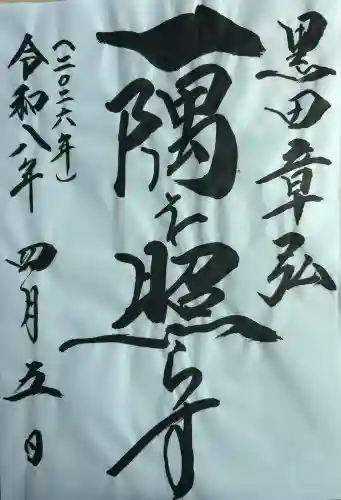 黒田章弘
一隅を照らす
令和八年 四月五日
(二〇二六年)